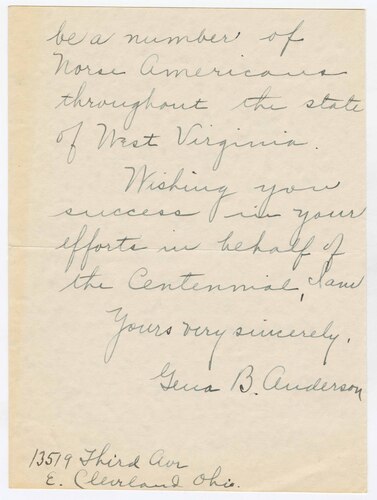 be a number of
Norse Americans
throughout the state
of West Virginia.
Wishing you
success in your
efforts in behalf of
the Centennial, I am
Yours very sincerely,
Gena B. Anderson
13519 Third Ave
E. Cleveland Ohio.